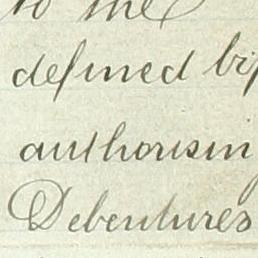 to the
defined by
authorising
Debentures